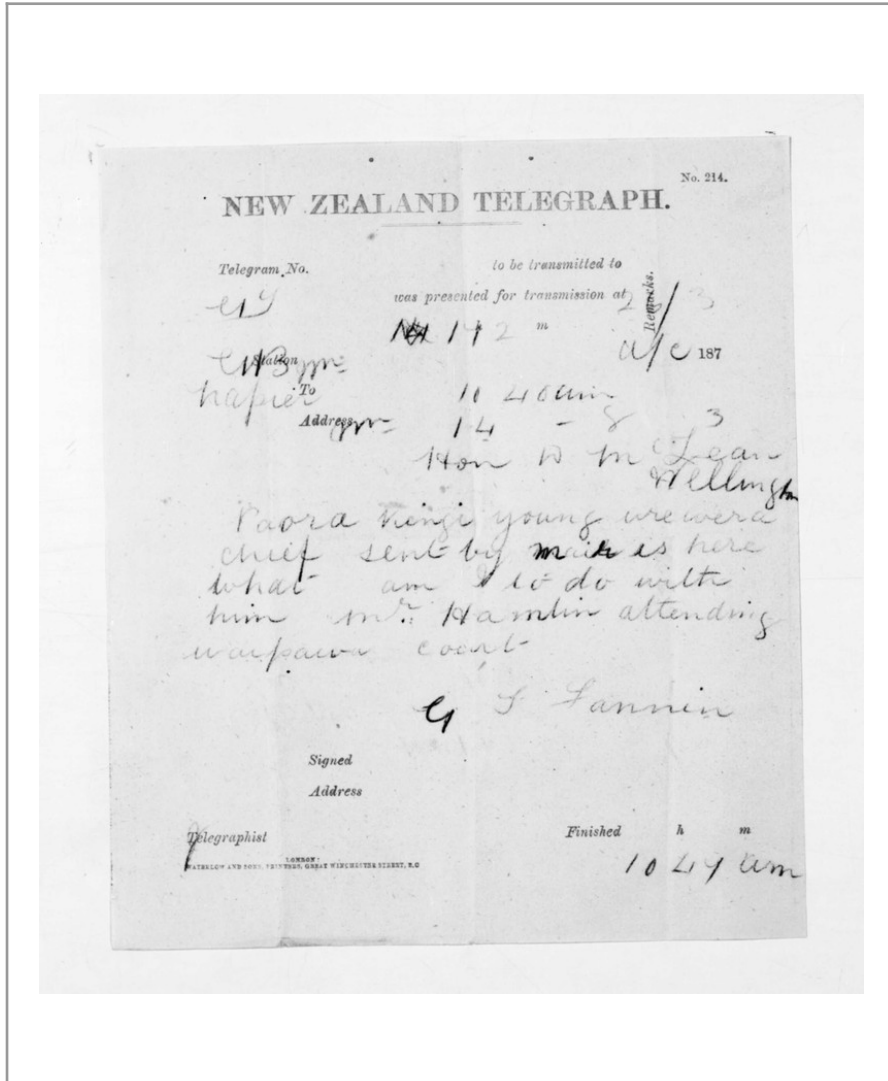 No. 214.
NEW ZEALAND TELEGRAPH.
Telegram No. to be transmitted to
was presented for transmission at
Remarks.
m
Station
a/c 187
Napier To 10 40 am
Address 14 - 8 3
Hon D McLean
Wellington
Paora Hengi young urewera
chief sent by mair is here
what am I to do with
him Mr. Hamlin attending
waipawa court
G F Fannin
Signed
Address
Telegraphist Finished h m
LONDON:
WATERLOW AND SONS, PRINTERS, GREAT WINCHESTER STREET, E.C
10 49 am